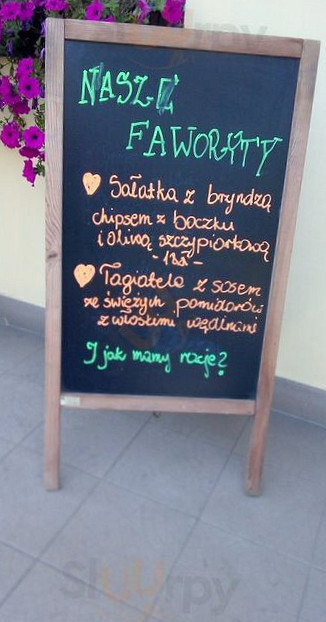 NASZE
FAWORYTY
Sałatka z bryndzą
chipsem z boczku
i oliwą szczypiorkową
- 18zł -
Tagiatele z sosem
ze świeżych pomidorów
z włoskimi wędlinami
I jak mamy rację?
Sluurpy